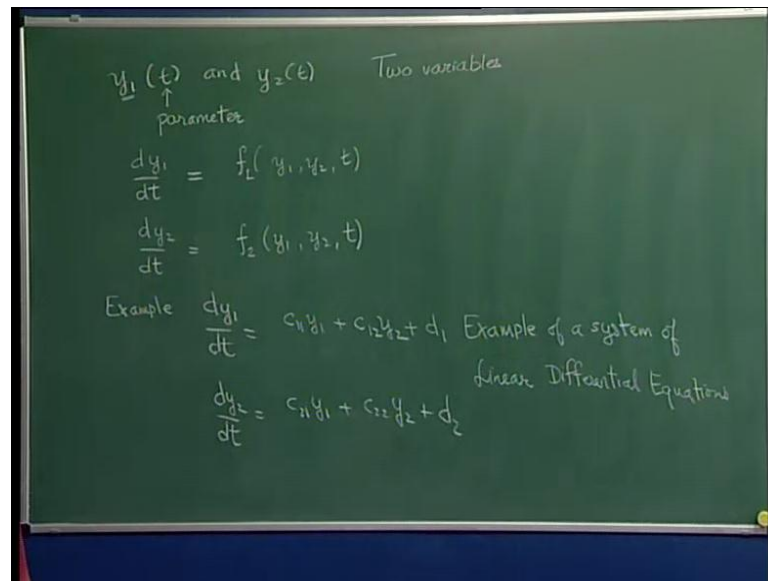 y₁(t) and y₂(t) Two variables
↑
parameter
dy₁/dt = f₁(y₁, y₂, t)
dy₂/dt = f₂(y₁, y₂, t)
Example dy₁/dt = c₁₁y₁ + c₁₂y₂ + d₁ Example of a system of
Linear Diffential Equations
dy₂/dt = c₂₁y₁ + c₂₂y₂ + d₂